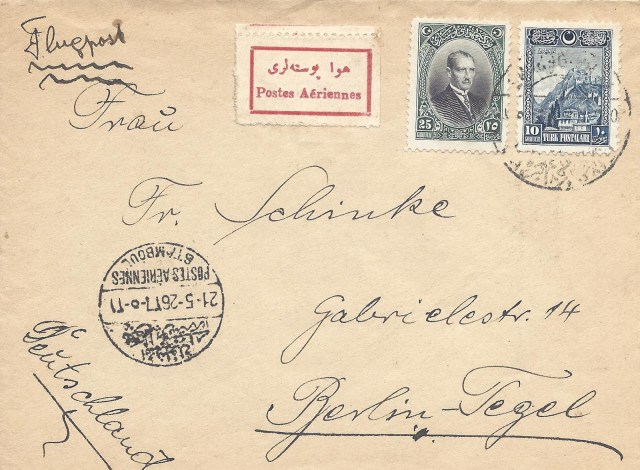 Flugpost
هوا پوسته‌لری
Postes Aériennes
25
٢٥
10
١٠
TÜRK POSTALARI
Frau
Fr. Schinke
POSTES AÉRIENNES
STAMBOUL
21-5-26
Gabrielestr. 14
Berlin-Tegel
Deutschland